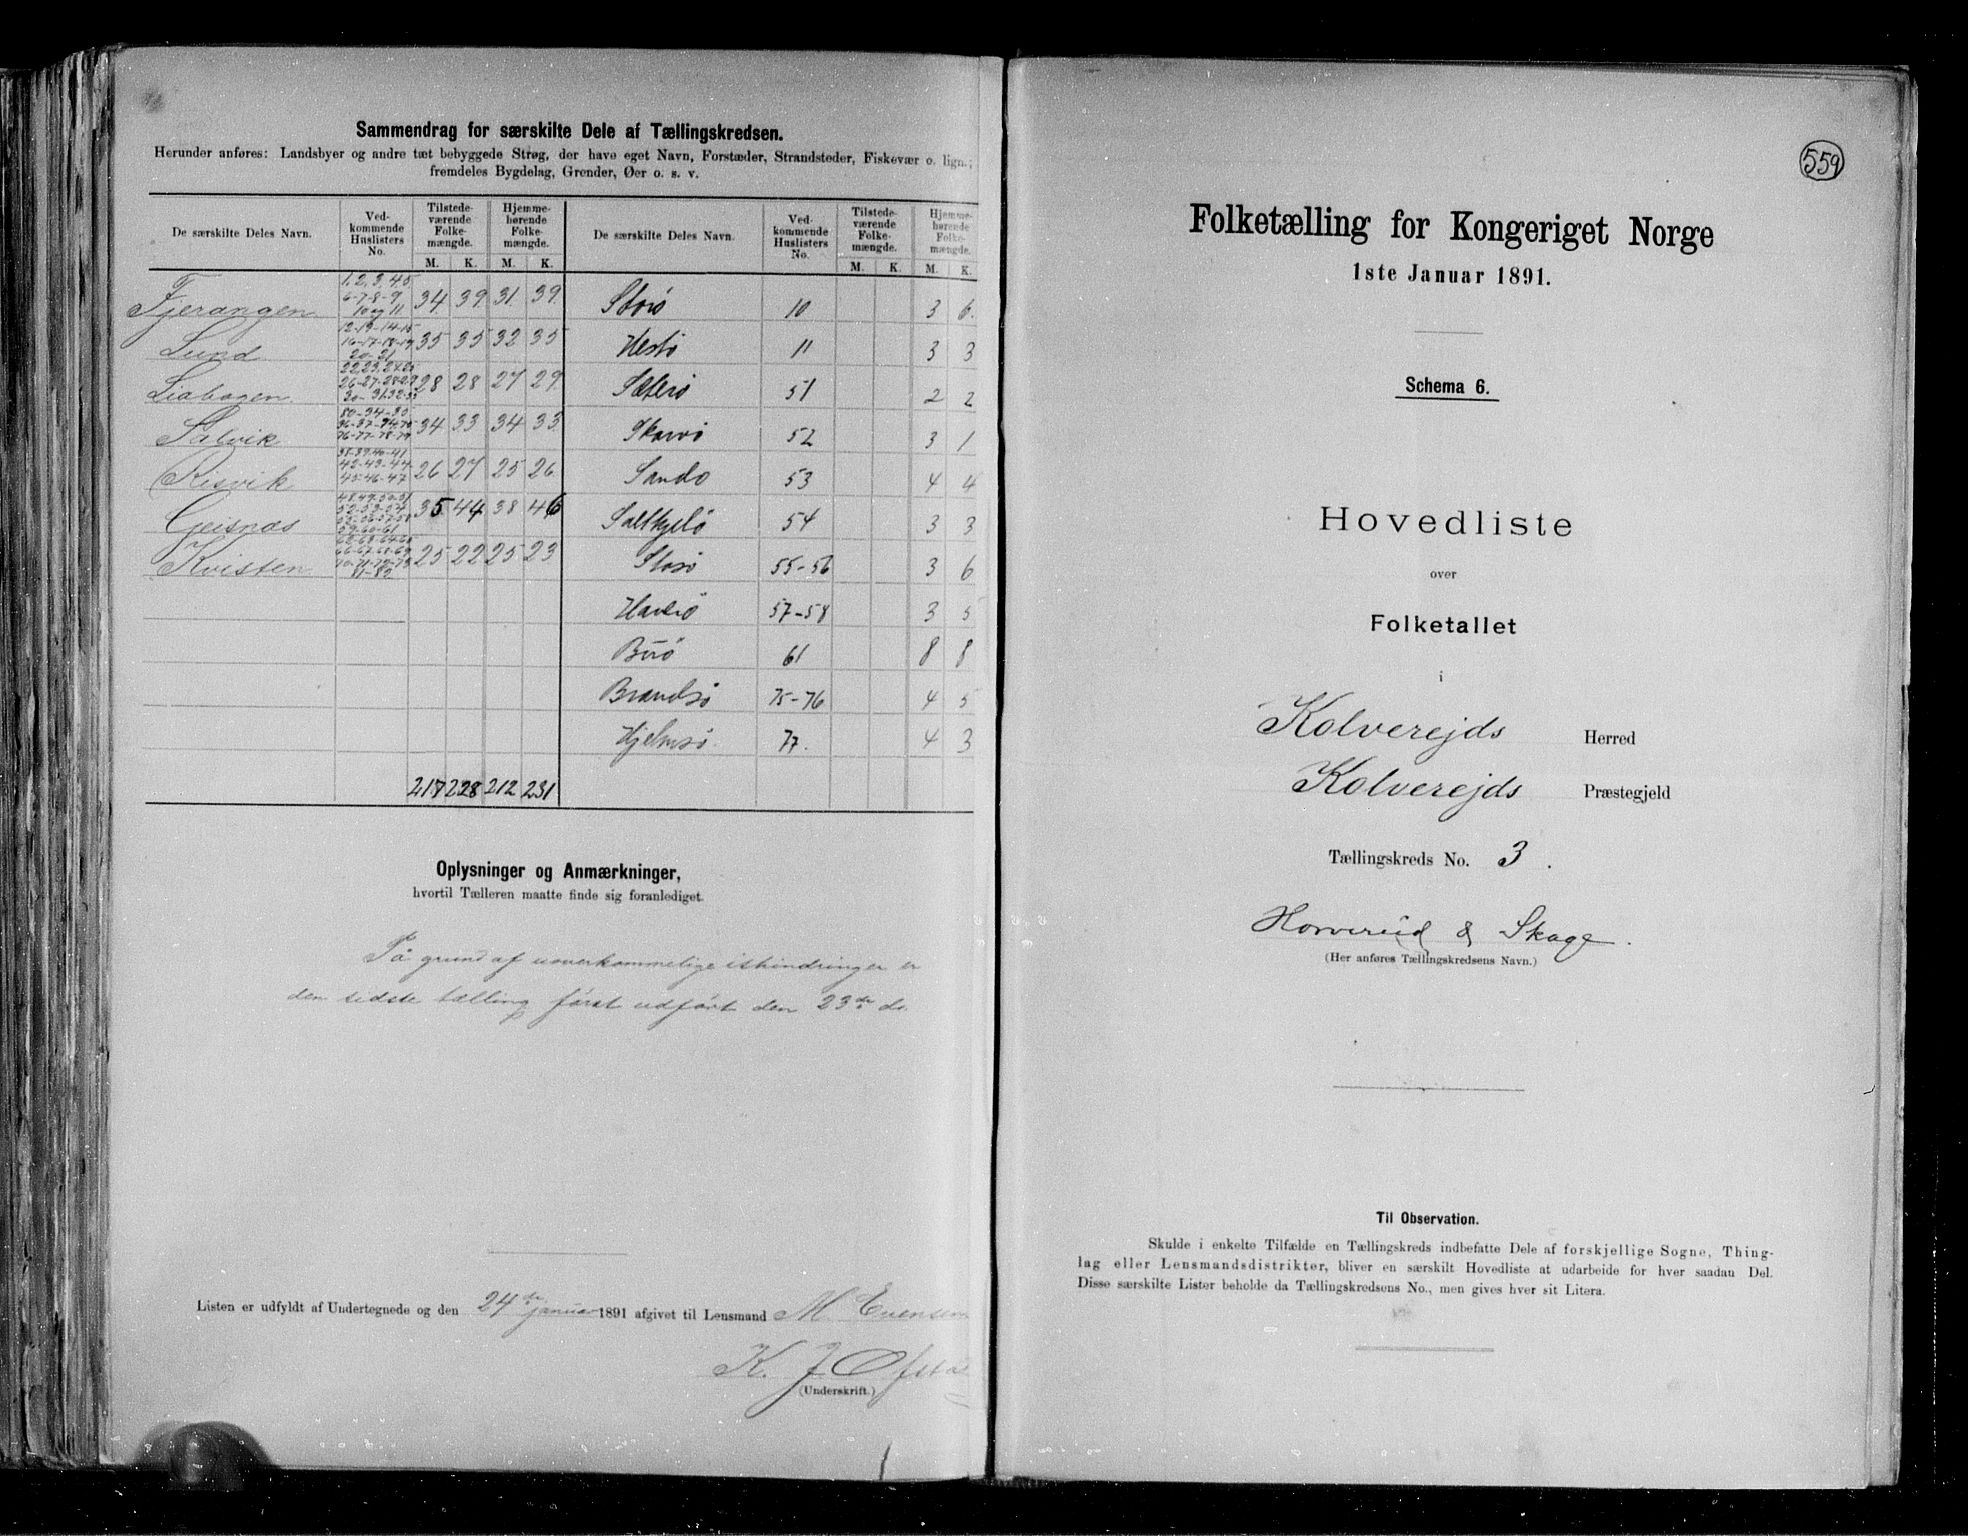 Sammendrag for særskilte Dele af Tællingskredsen.
Herunder anføres: Landsbyer og andre tæt bebyggede Strøg, der have eget Navn, Forstæder, Strandsteder, Fiskevær o. lign.;
fremdeles Bygdelag, Grender, Øer o. s. v.
De særskilte Deles Navn. Ved-kommende Huslisters No. Tilstede-værende Folke-mængde. Hjemme-hørende Folke-mængde. De særskilte Deles Navn. Ved-kommende Huslisters No. Tilstede-værende Folke-mængde. Hjemme-hørende Folke-mængde.
M. K. M. K. M. K. M. K.
Fjerangen 1, 2, 3, 4, 5 6-7-8-9 10 og 11 34 39 31 39 Storø 10 3 6
Lund 12-13-14-15 16-17-18-19 20-21 35 35 32 35 Hestø 11 3 3
Liabogen 28 28 27 29 Sæterø 51 2 2
Salvik 34 33 34 33 Skarvø 52 3 1
Risvik 38-39-40-41 42-43-44 45-46-47 26 27 25 26 Sandø 53 4 4
Geisnæs 35 44 38 46 54 3 3
Kvisten 25 22 25 23 55-56 3 6
57-58 3 5
Burø 61 8 8
Brandsø 75-76 4 5
Hjelmsø 77. 4 3
217 228 212 231
Oplysninger og Anmærkninger,
hvortil Tælleren maatte finde sig foranlediget.
På grund af uoverkommelige ishindringer er
den sidste tælling først udført den 23de ds.
Listen er udfyldt af Undertegnede og den 24de januar 1891 afgivet til Lensmand M. Evensen
K. J. Øfsta
(Underskrift.)
559
Folketælling for Kongeriget Norge
1ste Januar 1891.
Schema 6.
Hovedliste
over
Folketallet
i
Kolverejds Herred
Kolverejds Præstegjeld
Tællingskreds No. 3.
Horvereid & Skage.
(Her anføres Tællingskredsens Navn.)
Til Observation.
Skulde i enkelte Tilfælde en Tællingskreds indbefatte Dele af forskjellige Sogne, Thing-
lag eller Lensmandsdistrikter, bliver en særskilt Hovedliste at udarbeide for hver saadan Del.
Disse særskilte Lister beholde da Tællingskredsens No., men gives hver sit Litera.